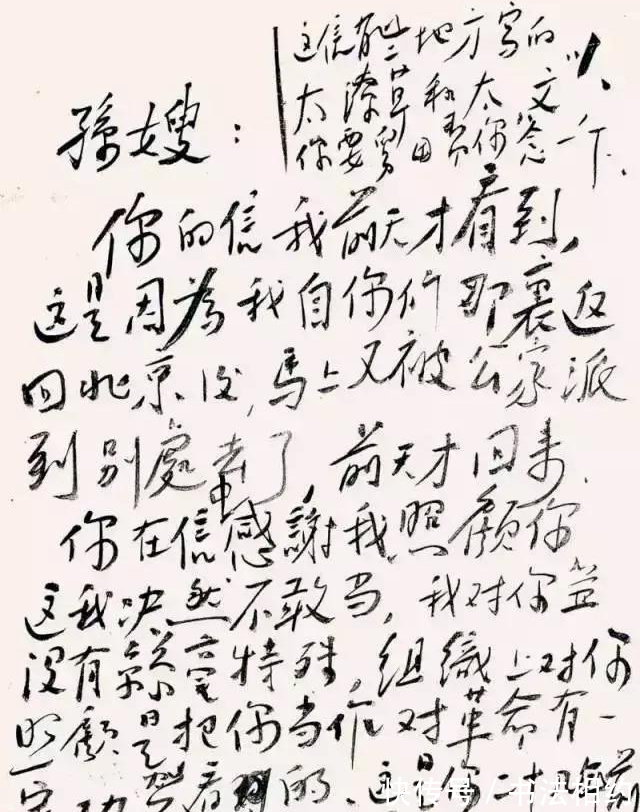 这信有些地方写的
太潦草和太文
你要
你念一下.
孫嫂：
你的信我前天才看到，
这是因為我自你们那裏返
回北京没，馬上又被公家派
到别處去了，前天才回来.
你在信中感謝我照顧你
这我决然不敢当，我对你並
没有 毫特殊，组織上对你
照顧是把你当作对革命有一
定功 看 的，这是你
快传号 / 书法相约